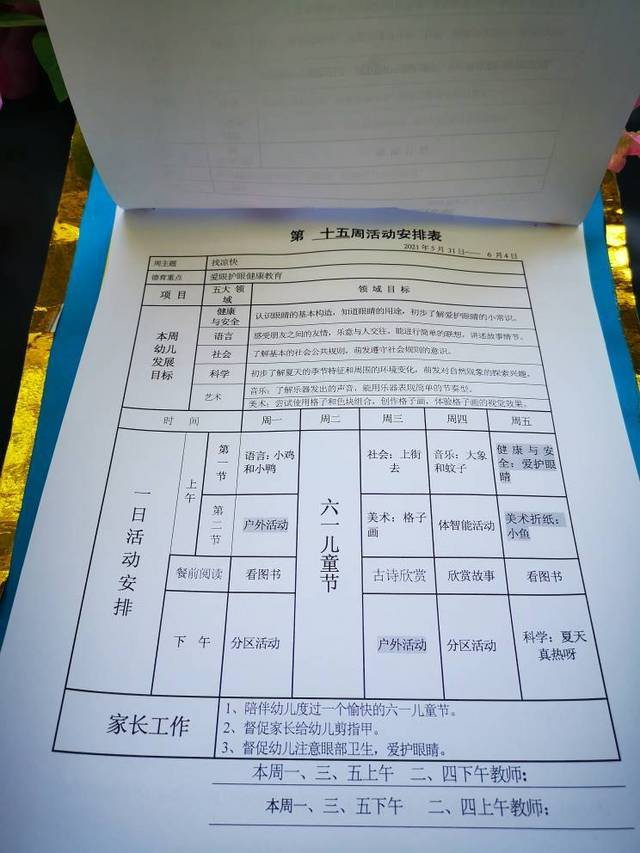 第 十五周活动安排表
2021年5月31日—— 6月4日
周主题 找凉快
德育重点 爱眼护眼健康教育
项目 五大领域 领域目标
本周幼儿发展目标
健康与安全 认识眼睛的基本构造,知道眼睛的用途,初步了解爱护眼睛的小常识。
语言 感受朋友之间的友情,乐意与人交往,能进行简单的联想,讲述故事情节。
社会 了解基本的社会公共规则,萌发遵守社会规则的意识。
科学 初步了解夏天的季节特征和周围的环境变化,萌发对自然现象的探索兴趣。
艺术 音乐:了解乐器发出的声音,能用乐器表现简单的节奏型。
美术:尝试使用格子和色块组合,创作格子画,体验格子画的视觉效果。
时间 周一 周二 周三 周四 周五
一日活动安排
上午
第一节 语言:小鸡和小鸭 社会:上街去 音乐:大象和蚊子 健康与安全:爱护眼睛
六一儿童节
第二节 户外活动 美术:格子画 体智能活动 美术折纸:小鱼
餐前阅读 看图书 古诗欣赏 欣赏故事 看图书
下午 分区活动 户外活动 分区活动 科学:夏天真热呀
家长工作
1、陪伴幼儿度过一个愉快的六一儿童节。
2、督促家长给幼儿剪指甲。
3、督促幼儿注意眼部卫生,爱护眼睛。
本周一、三、五上午 二、四下午教师:
本周一、三、五下午 二、四上午教师: